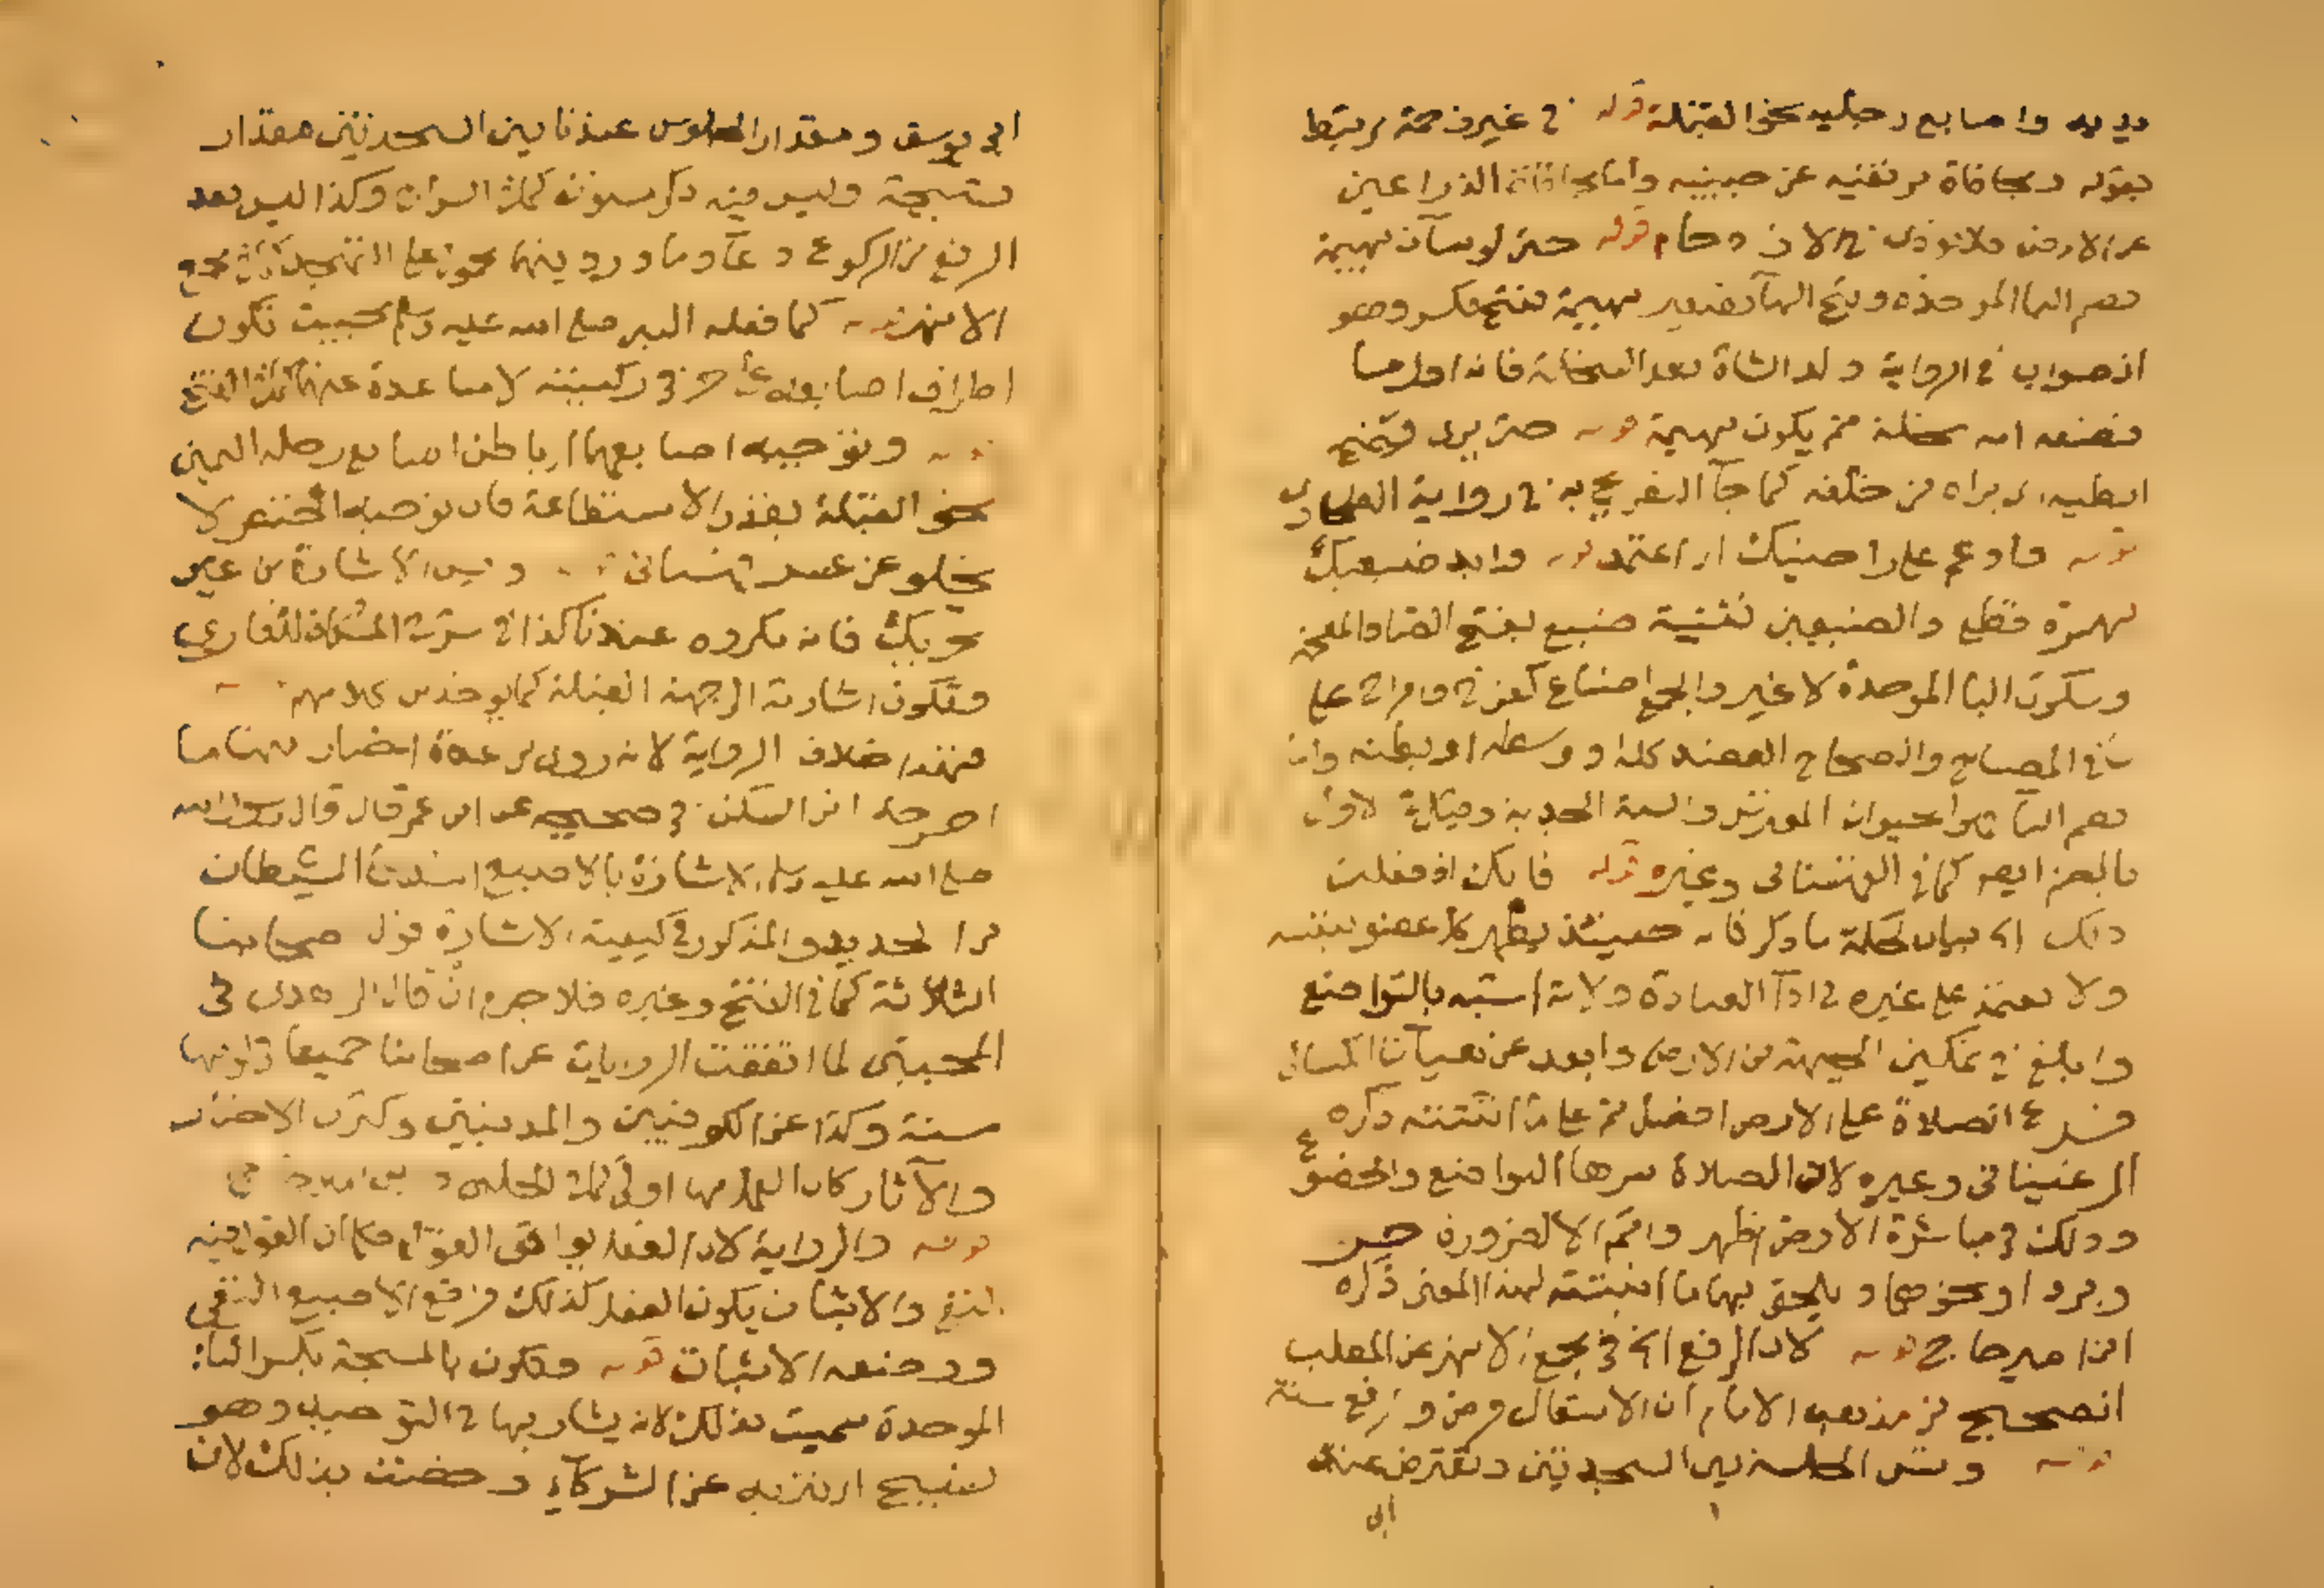 يديه واصابع رجليه نحو القبلة قوله في غير زحمة مرتبط
بقوله ومجافاة مرفقيه عن جنبيه واما مجافاة الذراعين
عن الارض فلا تؤذى في الازدحام قوله حتى لو شآت بهيمة
بضم البا الموحدة وفتح الهآ تصغير بهيمة بفتح فكسر وهو
الصواب في الرواية ولد الشاة بعد السخلة فانه اول ما
تضعه امه سخلة ثم يكون بهيمة قوله حتى يرى وضح
ابطيه اى يراه من خلفه كما جآ التصريح به في رواية الطحاوى
قوله وادعم على راحتيك اى اعتمد قوله وابد ضبعيك
بهمزة قطع والضبعين تثنية ضبع بفتح الضاد المعجمة
وسكون البا الموحدة لا غير والجمع اضباع كفرخ وافراخ على
ما في المصباح والصحاح العضد كله او وسطه او بطنه واما
بضم البآ فهو الحيوان المفترس والسنة المجدبة وحكى في الاول
بالضم ايضا كما في القهستانى وغيره قوله فانك اذا فعلت
ذلك الخ بيان لحكمة ما ذكر فانه حينئذ يظهر كل عضو بنفسه
ولا يعتمد على غيره في ادآ العبادة ولانه اشبه بالتواضع
وابلغ في تمكين الجبهة من الارض وابعد عن هيآت الكسالى
فرع الصلاة على الارض افضل ثم على ما انبتته ذكره
البرغينانى وغيره لان الصلاة سرها التواضع والخضوع
وذلك في مباشرة الارض اظهر واتم الا لضرورة حر
وبرد او نحوهما ويلحق بها ما انبتته لهذا المعنى ذكره
ابن امير حاج قوله لان الرفع الخ في مجمع الانهر عن المطلب
الصحيح من مذهب الامام ان الانتقال فرض والرفع سنة
قوله وتسن الجلسة بين السجدتين وتفترض عند
ابى
ابى يوسف ومقدار الجلوس عندنا بين السجدتين مقدار
تسبيحة وليس فيه ذكر مسنون كما في السراج وكذا ليس بعد
الرفع من الركوع دعآ وما ورد فيهما محمول على التهجد كما في مجمع
الانهر قوله كما فعله النبى صلى الله عليه وسلم بحيث تكون
اطراف اصابعه على حرفى ركبتيه لا مباعدة عنهما كما في الفتح
قوله وتوجيه اصابعها اى باطن اصابع رجله اليمين
نحو القبلة بقدر الاستطاعة فان توجيه الخنصر لا
يخلو عن عسر قهستانى قوله وتسن الاشارة من غير
تحريك فانه مكروه عندنا كذا في شرح المشكاة للقارى
وتكون اشارته الى جهة القبلة كما يؤخذ من كلامهم
فهذا خلاف الرواية لانه روى في عدة اخبار منها ما
اخرجه ابن السكن في صحيحه عن ابن عمر قال قال رسول الله
صلى الله عليه وسلم الاشارة بالاصبع اشد على الشيطان
من الحديد والمذكور في كيفية الاشارة قول اصحابنا
الثلاثة كما في الفتح وغيره فلا جرم ان قال الزاهدى في
المجتبى لما اتفقت الروايات عن اصحابنا جميعا في كونها
سنة وكذا عن الكوفيين والمدنيين وكثرت الاخبار
والآثار كان العمل بها اولى كما في الحلبى وابن امير حاج
قوله والدراية لان الفعل يوافق القول فكما ان القول فيه
النفى والاثبات يكون الفعل كذلك فرفع الاصبع النفى
ووضعه الاثبات قوله وتكون بالمسبحة بكسر البآ
الموحدة سميت بذلك لانه يشار بها في التوحيد وهو
تسبيح اى تنزيه عن الشركآء وخصت بذلك لان